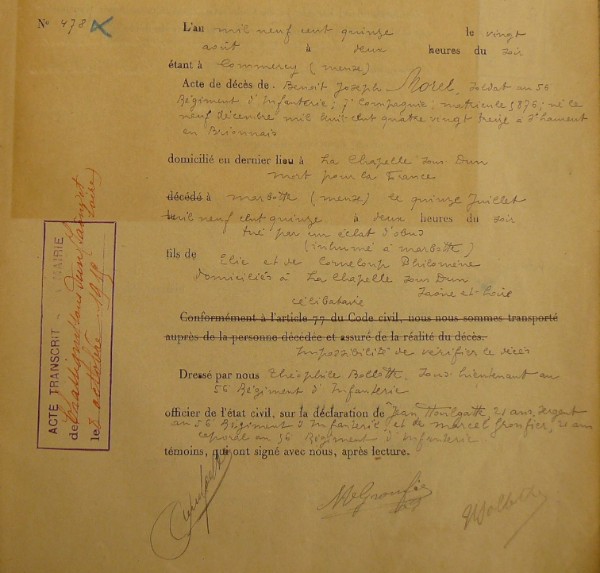 N° 478
L'an mil neuf cent quinze le vingt
août à deux heures du soir
étant à Commercy (meuse)
Acte de décès de Benoit Joseph Morel, soldat au 56
Régiment d'Infanterie; 7e Compagnie; matricule 5876; né le
neuf décembre mil huit cent quatre vingt treize à St
en Brionnais
domicilié en dernier lieu à La Chapelle sous Dun
mort pour la France
décédé à marbotte (meuse) le quinze Juillet
mil neuf cent quinze à deux heures du soir
tué par un éclat d'obus
(inhumé à marbotte)
fils de Elie et de Corneloup Philomène
domiciliés à La Chapelle sous Dun
Saône-et-Loire
célibataire
Conformément à l'article 77 du Code civil, nous nous sommes transporté
auprès de la personne décédée et assuré de la réalité du décès.
Impossibilité de vérifier le décès
Dressé par nous Théophile Bollotte, Sous lieutenant au
56 Régiment d'Infanterie
officier de l'état civil, sur la déclaration de Jean 21 ans, sergent
au 56 Régiment d'Infanterie, et de marcel Gronfier, 20 ans
caporal au 56 Régiment d'Infanterie
témoins, qui ont signé avec nous, après lecture.
MGronfier
Bollotte
ACTE TRANSCRIT MAIRIE
de sous Dun (Saône et
Loire)
le 2 octobre 1915